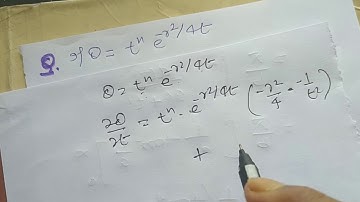 Q. If θ = tⁿ e^(-r²/4t)
θ = tⁿ e^(-r²/4t)
∂θ/∂t = tⁿ · e^(-r²/4t) (-r²/4 · -1/t²)
+